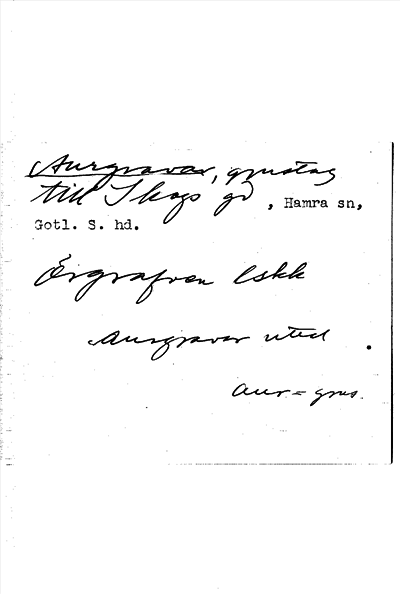 Aurgravar, grustag
till Skogs gd, Hamra sn,
Gotl. S. hd.
Örgrafven lskk
Aurgravar uted
aur = grus.